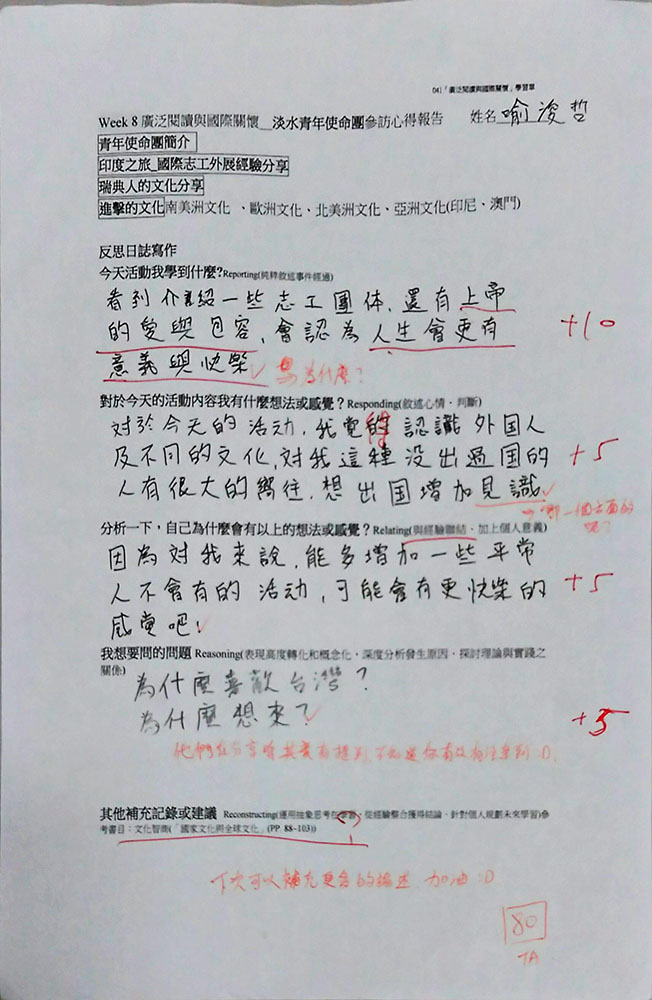 041「廣泛閱讀與國際關懷」學習單
Week 8 廣泛閱讀與國際關懷__淡水青年使命團參訪心得報告 姓名 喻浚哲
青年使命團簡介
印度之旅_國際志工外展經驗分享
瑞典人的文化分享
進擊的文化 南美洲文化、歐洲文化、北美洲文化、亞洲文化(印尼、澳門)
反思日誌寫作
今天活動我學到什麼?Reporting(純粹敘述事件經過)
看到介紹一些志工團体,還有上帝
的愛與包容,會認為人生會更有 +10
意義與快樂 為什麼?
對於今天的活動內容我有什麼想法或感覺? Responding(敘述心情、判斷)
對於今天的活动,我覚得認識外国人
及不同的文化,对我這種没出過国的 +5
人有很大的嚮往,想出国增加見識
→哪一個方面的
呢?
分析一下,自己為什麼會有以上的想法或感覺? Relating(與經驗聯結、加上個人意義)
因為対我來說,能多增加一些平常
人不會有的活动,可能會有更快樂的 +5
感覚吧!
我想要問的問題 Reasoning(表現高度轉化和概念化、深度分析發生原因、探討理論與實踐之
關係)
為什麼喜歡台灣?
為什麼想來? +5
他們在分享時其實有提到,不知道你有沒有注意到:D.
其他補充記錄或建議 Reconstructing(運用抽象思考在學習、從經驗整合獲得結論、針對個人規劃未來學習)參
考書目:文化智商(「國家文化與全球文化」(PP 88~103))
下次可以補充更多的描述,加油:D
80
TA